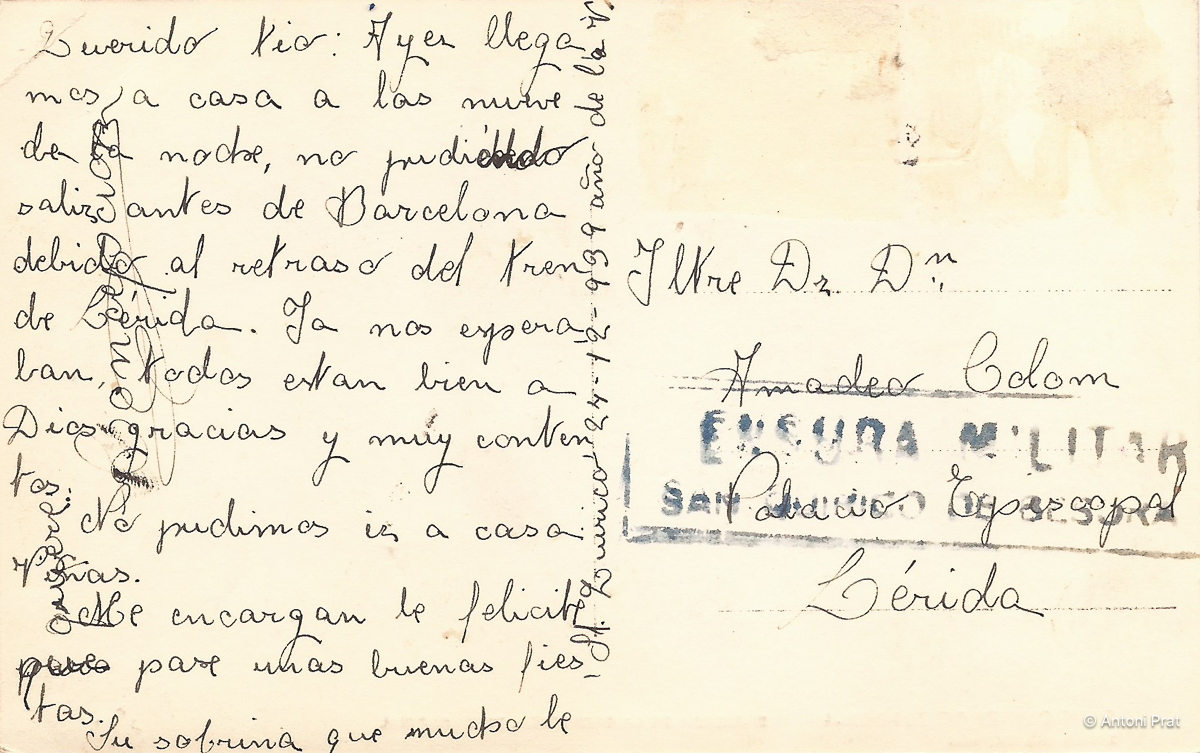 Querido tio: Ayer llega
mos a casa a las nueve
de la noche, no pudiendo
salir antes de Barcelona
debido al retraso del tren
de Lérida. Ya nos espera
ban, todos estan bien a
Dios gracias y muy conten
tos.
No pudimos ir a casa
Viñas.
Me encargan le felicite
pase unas buenas fies-
tas.
Su sobrina que mucho le
quiere
Concepción
St. Quirico 24-12-939 año de la V
Iltre Dr. Dn
Amadeo Colom
Palacio Episcopal
Lérida
CENSURA MILITAR
SAN QUIRICO DE BESORA
© Antoni Prat